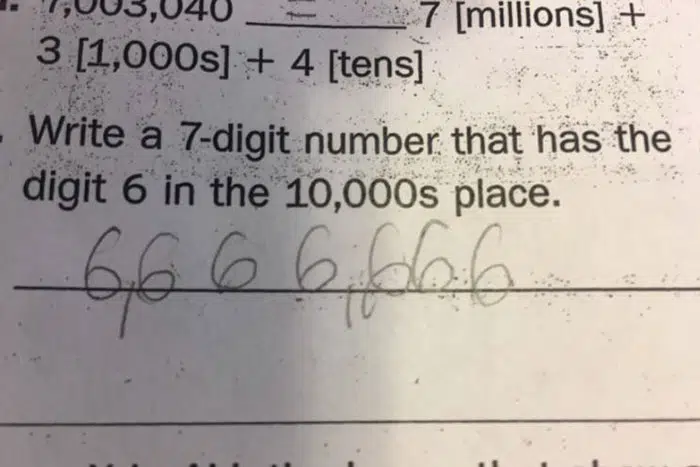 7,003,040 = 7 [millions] +
3 [1,000s] + 4 [tens]
Write a 7-digit number that has the
digit 6 in the 10,000s place.
6,666,666